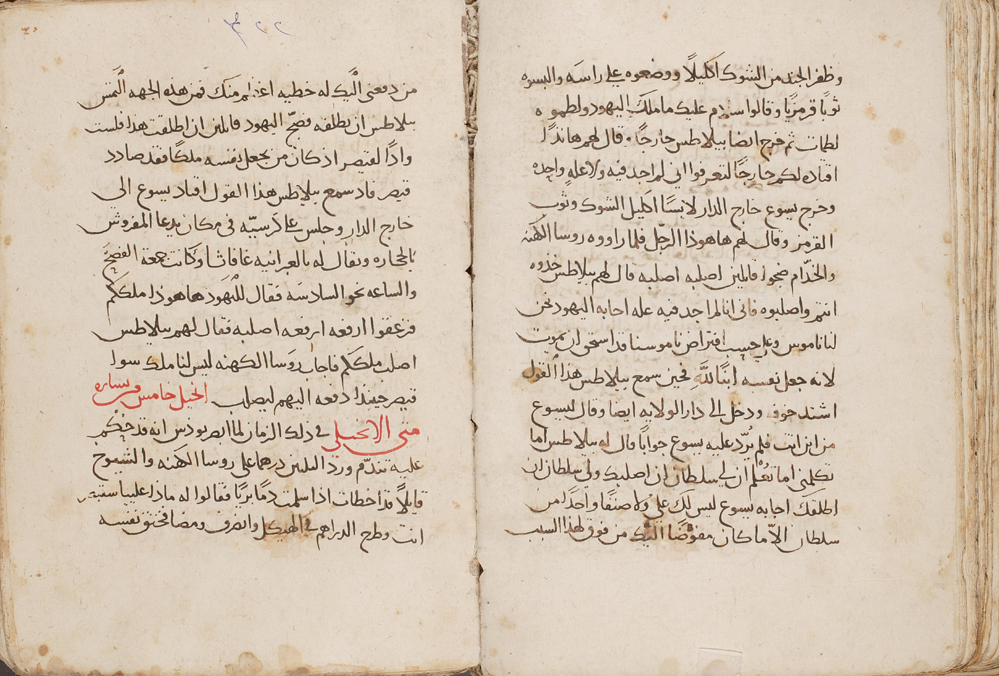 وظفر الجند من الشوك اكليلاً ووضعوه على راسه والبسوه
ثوبًا قرمزيًا وقالوا سلام عليك يا ملك اليهود ولطموه
لطمات ثم خرج ايضا بيلاطس خارجًا. قال لهم هاندا
اقتاده لكم خارجًا لتعرفوا اني لم اجد فيه ولا علهٍ واحده
وخرج يسوع خارج الدار لابسًا اكليل الشوك وثوب
القرمز وقال لهم ها هوذا الرجل فلما راووه روسا الكهنه
والخدّام ضجوا قايلين اصلبه اصلبه قال لهم بيلاطس خدوه
انتم واصلبوه فاني انا لم اجد فيه عله اجابه اليهود نحن
لنا ناموس وعلى حسب افتراض ناموسنا قد استحق ان يموت
لانه جعل نفسه ابنًا لله فحين سمع بيلاطس هذا القول
اشتد خوفه ودخل الى دار الولايه ايضا وقال ليسوع
من اين انت فلم يُرّد عليه يسوع جوابًا قال له بيلاطس اما
تكلمني اما تعْلم أن لي سلطان ان اصلبك ولي سلطان ان
اطلقك اجابه يسوع ليس لك علي ولا صنفًا واحدًا من
سلطان الاّ ما كان مفوّضًا اليك من فوق لهذا السبب
٣٢٢
من دفعني اليك له خطيه اعظم منك فمن هذه الجهه التمس
بيلاطس ان يطلقه فضجّ اليهود قايلين ان اطلقت هذا فلست
وادًا لقيصر اذ كان من يجعل نفسه ملكًا فقد صادد
قيصر فاد سمع بيلاطس هذا القول اقتاد يسوع الى
خارج الدار وجلس على كرسيّه في مكان يدعا المفروش
بالحجاره ويقال له بالعبرانيه غافاثا وكانت جمعة الفصح
والساعه نحو السادسه فقال لليهود ها هوذا ملككم
فزعقوا ارفعه ارفعه اصلبه فقال لهم بيلاطس
اصلب ملككم فاجاب روسا الكهنه ليس لنا ملك سوا
قيصر حينيذ دفعه اليهم ليصلب انجيل خامس وبشاره
متى الانجيلي في ذلك الزمان لما ابصر يوذس انه قد حكم
عليه تندّم ورد الثلثين درهما على روسا الكهنه والشيوخ
قايلاً قد اخطات اذ اسلمت دمًا بريًا فقالوا له ماذا علينا ستبصر
انت وطرح الدراهم في الهيكل وانصرف ومضا فخنق نفسه